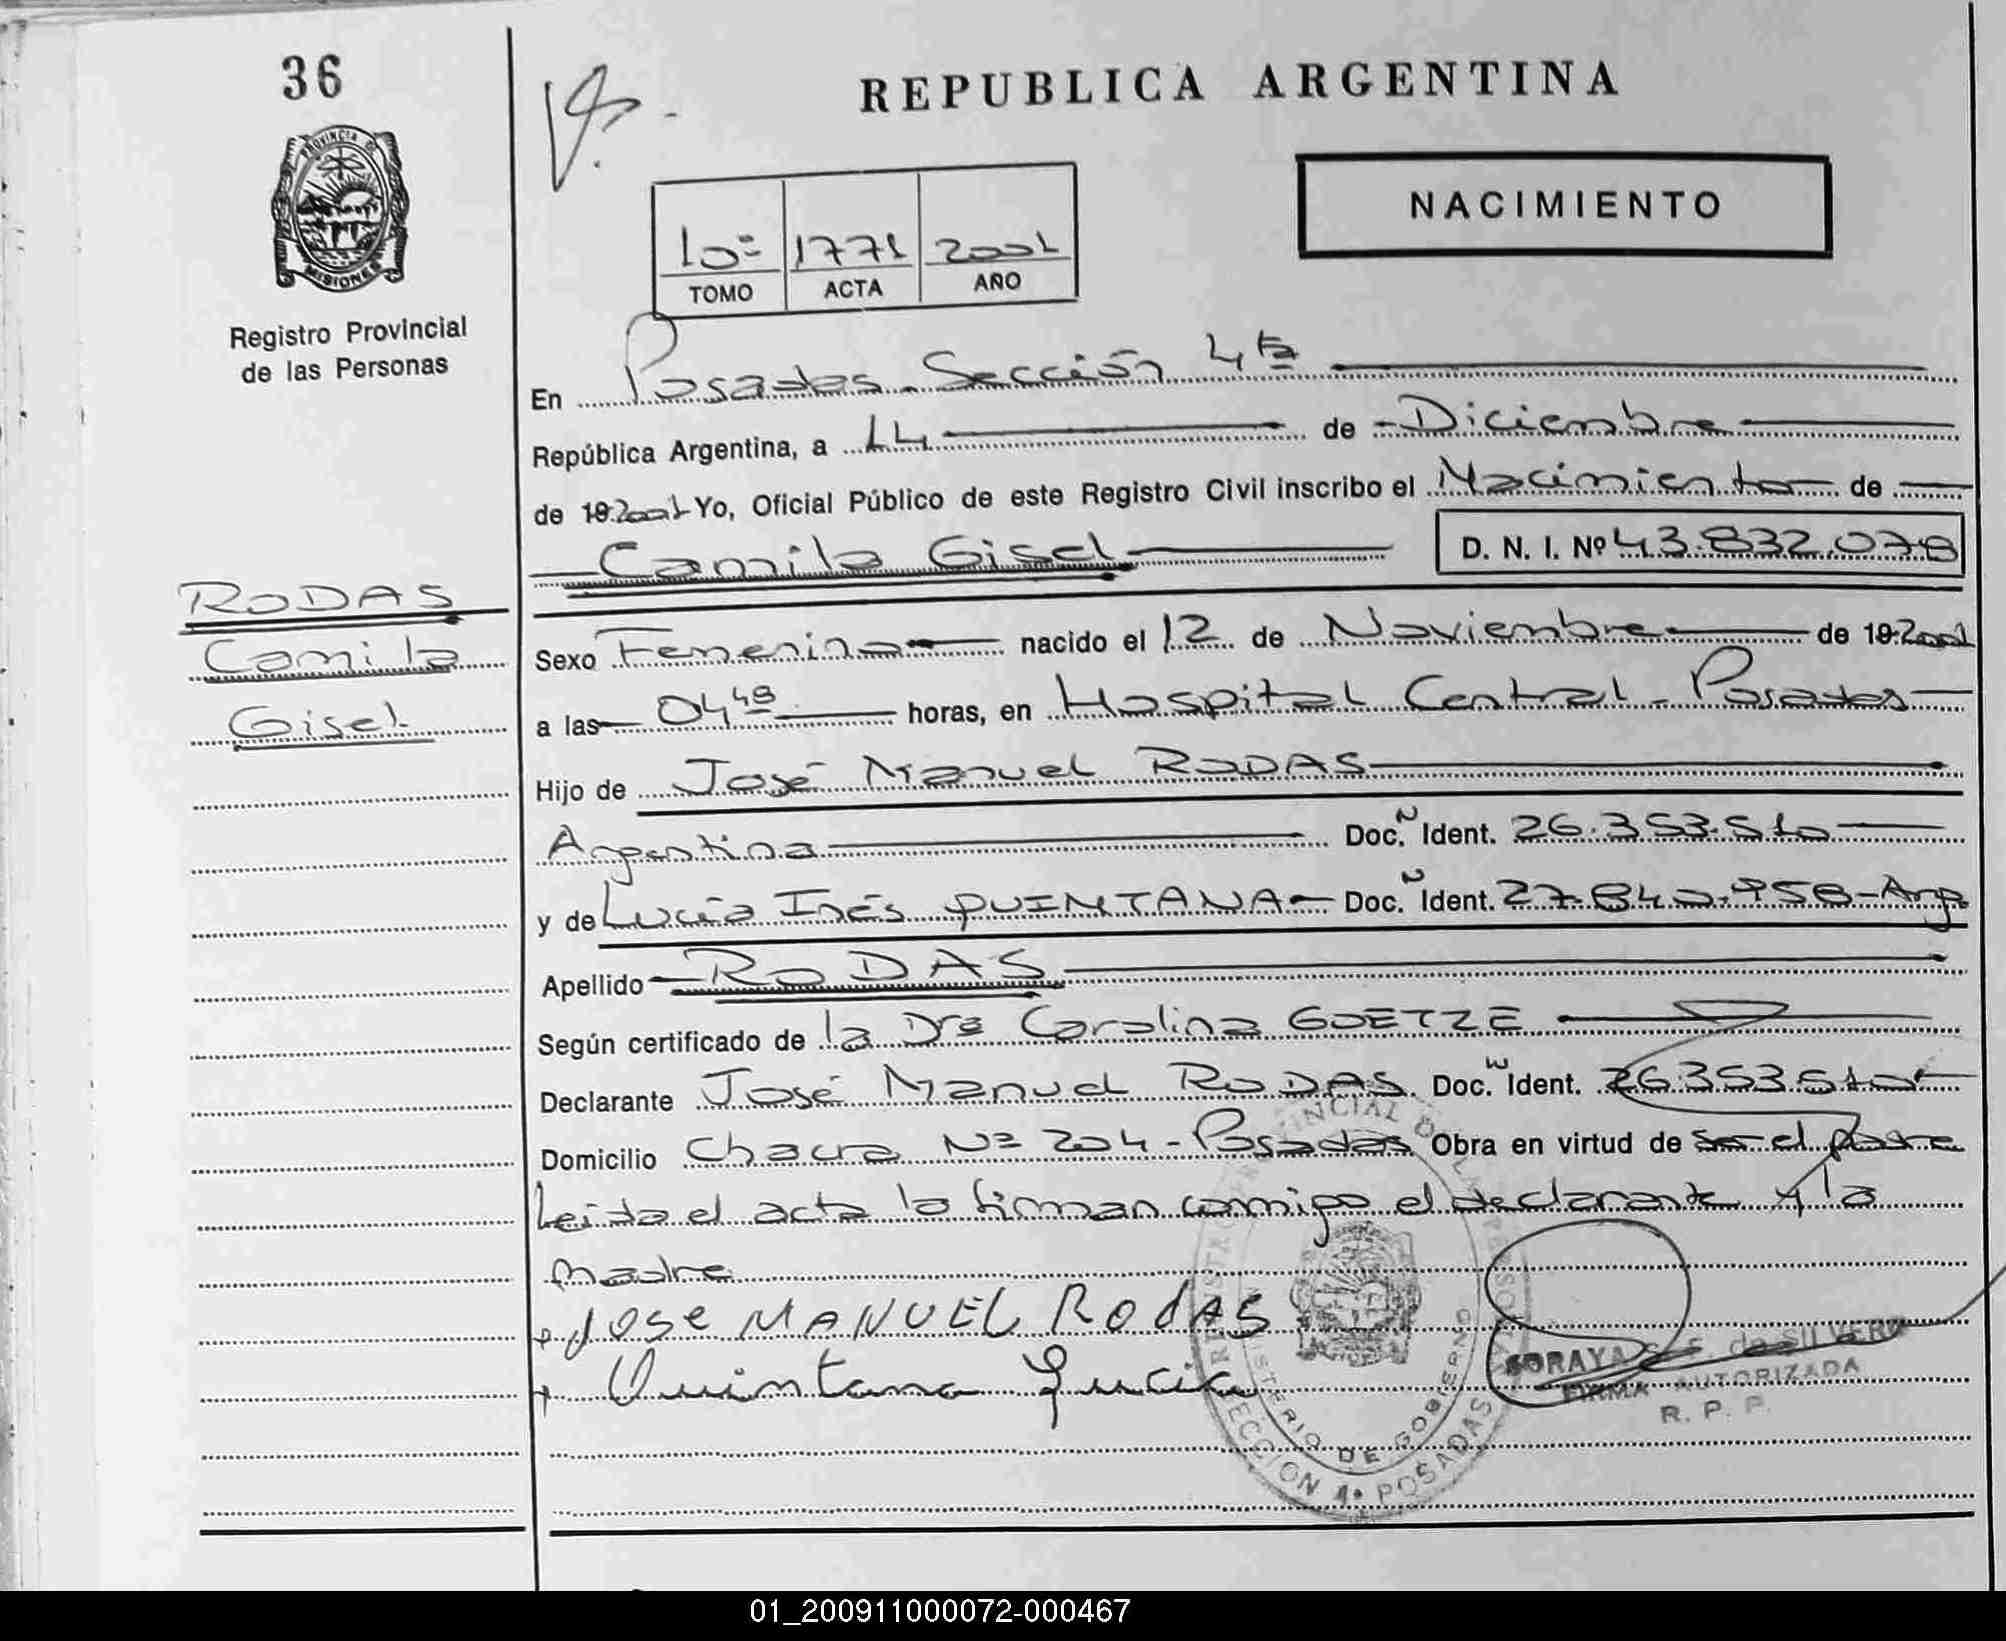 36
REPUBLICA ARGENTINA
PROVINCIA DE
MISIONES
NACIMIENTO
10º 1771 2001
TOMO ACTA AÑO
Registro Provincial
de las Personas
En Posadas - Sección 4ta
República Argentina, a 14 de Diciembre
de 19 2001 Yo, Oficial Público de este Registro Civil inscribo el Nacimiento de
Camila Gisel D. N. I. Nº 43.832.078
RODAS
Camila
Gisel
Sexo Femenino nacido el 12 de Noviembre de 19 2001
a las 04 48 horas, en Hospital Central - Posadas
Hijo de José Manuel RODAS
Argentina Doc. N Ident. 26.353.510
y de Lucía Inés QUINTANA Doc. N Ident. 27.840.958 - Arg.
Apellido RODAS
Según certificado de la Dra Carolina GOETZE
Declarante José Manuel RODAS Doc. N Ident. 26.353.510
Domicilio Chacra Nº 204 - Posadas Obra en virtud de ser el padre
Leida el acta la firman conmigo el declarante y la
madre
JOSE MANUEL RODAS
Quintana Lucía
SORAYA de SILVERO
FIRMA AUTORIZADA
R. P. P.
MINISTERIO DE GOBIERNO
SECCION 4ª POSADAS
01_200911000072-000467